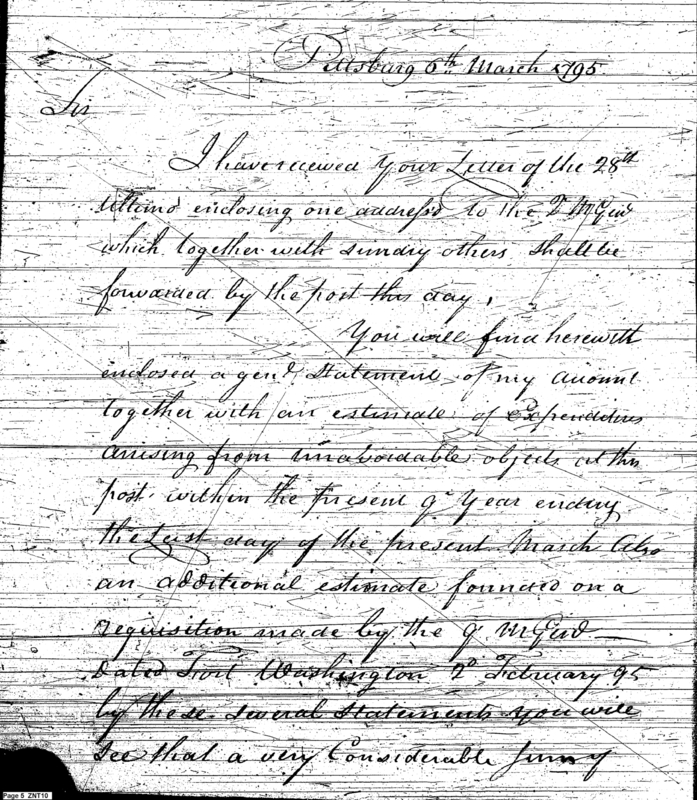 Pittsburg 6th March 1795
Sir
I have received Your Letter of the 28th
Ultimo enclosing one address'd to the Q M Genl
which together with sundry others shall be
forwarded by the post this day,
You will find herewith
enclosed a genl. Statement of my account
together with an estimate of Expenditures
arrising from unavoidable objects at this
post within the present qr Year ending
the Last day of the present March Also
an additional estimate founded on a
requisition made by the q M Genl
Dated Fort Washington 2d February 95
by these several Statements you will
see that a very Considerable Sum of
Page 5 ZNT10